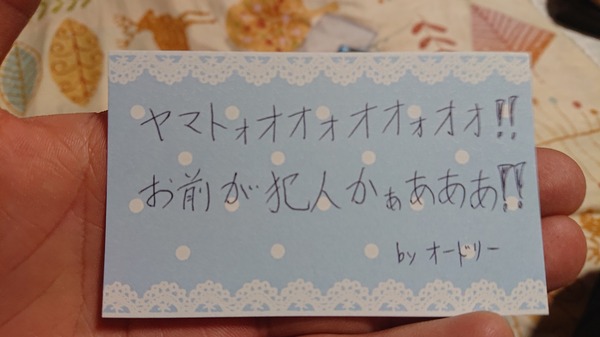 ヤマトォオオォオオォオオ!!
お前が犯人かぁあああ!!
by オードリー